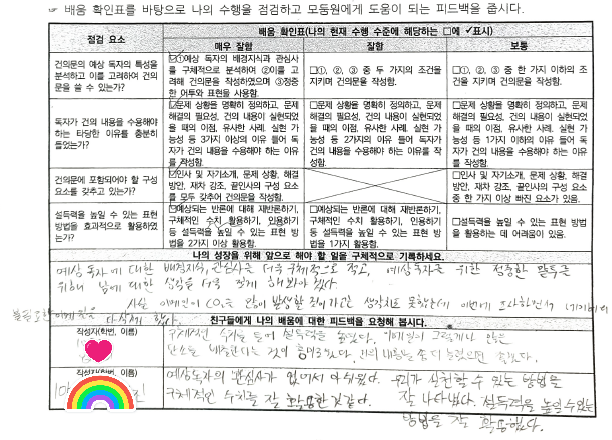 ☞ 배움 확인표를 바탕으로 나의 수행을 점검하고 모둠원에게 도움이 되는 피드백을 줍시다.
점검 요소
배움 확인표(나의 현재 수행 수준에 해당하는 □에 ✓표시)
매우 잘함 잘함 보통
건의문의 예상 독자의 특성을 분석하고 이를 고려하여 건의문을 쓸 수 있는가?
☑①예상 독자의 배경지식과 관심사를 구체적으로 분석하여 ②이를 고려해 건의문을 작성하였으며 ③정중한 어투와 표현을 사용함.
□①, ②, ③ 중 두 가지의 조건을 지키며 건의문을 작성함.
□①, ②, ③ 중 한 가지 이하의 조건을 지키며 건의문을 작성함.
독자가 건의 내용을 수용해야 하는 타당한 이유를 충분히 들었는가?
☑문제 상황을 명확히 정의하고, 문제 해결의 필요성, 건의 내용이 실현되었을 때의 이점, 유사한 사례, 실현 가능성 등 3가지 이상의 이유 들어 독자가 건의 내용을 수용해야 하는 이유를 작성함.
□문제 상황을 명확히 정의하고, 문제 해결의 필요성, 건의 내용이 실현되었을 때의 이점, 유사한 사례, 실현 가능성 등 2가지의 이유 들어 독자가 건의 내용을 수용해야 하는 이유를 작성함.
□문제 상황을 명확히 정의하고, 문제 해결의 필요성, 건의 내용이 실현되었을 때의 이점, 유사한 사례, 실현 가능성 등 1가지 이하의 이유 들어 독자가 건의 내용을 수용해야 하는 이유를 작성함.
건의문에 포함되어야 할 구성 요소를 갖추고 있는가?
☑인사 및 자기소개, 문제 상황, 해결 방안, 재차 강조, 끝인사의 구성 요소를 모두 갖추어 건의문을 작성함.
□인사 및 자기소개, 문제 상황, 해결 방안, 재차 강조, 끝인사의 구성 요소 중 한 가지 이상 빠진 요소가 있음.
설득력을 높일 수 있는 표현 방법을 효과적으로 활용하였는가?
☑예상되는 반론에 대해 재반론하기, 구체적인 수치 활용하기, 인용하기 등 설득력을 높일 수 있는 표현 방법을 2가지 이상 활용함.
□예상되는 반론에 대해 재반론하기, 구체적인 수치 활용하기, 인용하기 등 설득력을 높일 수 있는 표현 방법을 1가지 활용함.
□설득력을 높일 수 있는 표현 방법을 활용하는 데 어려움이 있음.
나의 성장을 위해 앞으로 해야 할 일을 구체적으로 기록하세요.
예상 독자에 대한 배경지식, 관심사를 더욱 구체적으로 적고, 예상독자를 위한 정중한 말투를
위해 남에 대한 생각을 더욱 깊게 해봐야겠다.
사실 이메일이 CO₂를 많이 발생할 것이라고는 생각치도 못했는데 이번에 조사하면서
친구들에게 나의 배움에 대한 피드백을 요청해 봅시다.
작성자(학번, 이름)
구체적인 수치를 들어 설득력을 높였다.
탄소를 배출한다는 것이 흥미로웠다.
작성자(학번, 이름)
예상독자의 관심사가 있어서 아쉬웠다. 우리가 실천할 수 있는 방법을
구체적인 수치를 잘 활용한 것 같다. 잘 나타냈다. 설득력을 높일 수 있는
방법을 잘 활용했다.